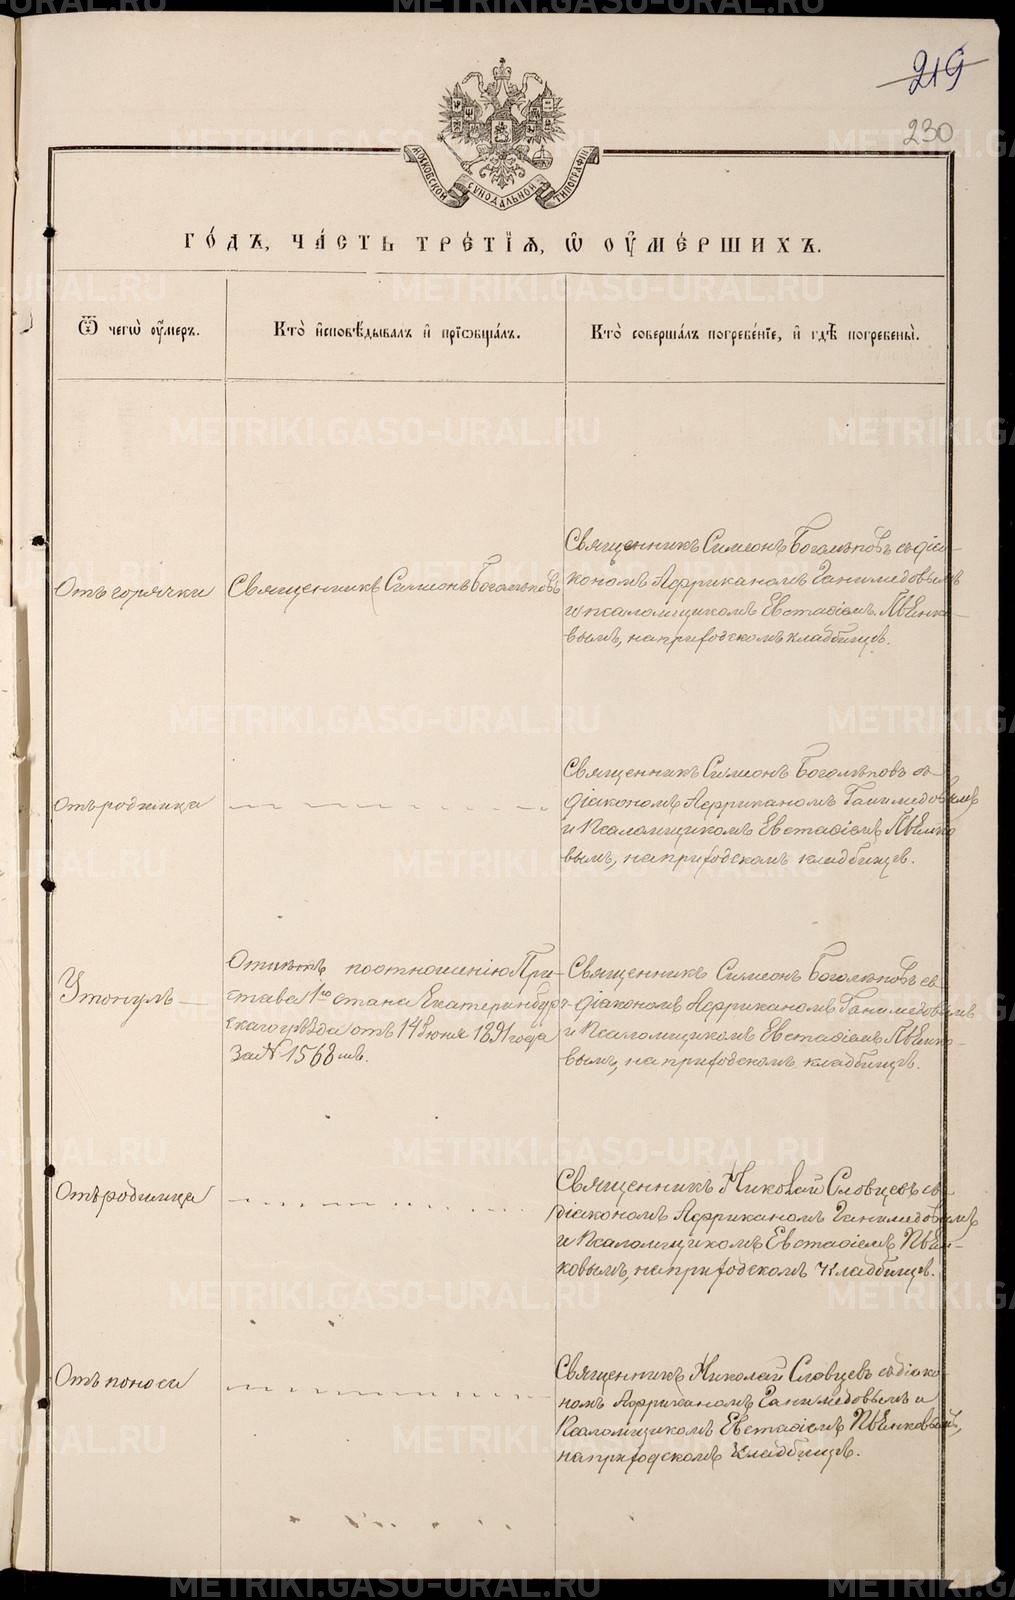 219
230
МОСКОВСКОЙ СУНОДАЛЬНОЙ ТИПОГРАФІИ
ГО́ДЪ, ЧА́СТЬ ТРЕ́ТІѦ, Ѡ҆ ОУ҆МЕ́РШИХЪ.
Ѿ чегѡ̀ оу҆́меръ.
Кто̀ и҆сповѣ́дывалъ и҆ прїѡбща́лъ.
Кто̀ соверша́лъ погребе́нїе, и҆ гдѣ̀ погребены̀.
Отъ горячки
Священникъ Симеонъ Боголѣповъ
Священникъ Симеонъ Боголѣповъ съ діа-
кономъ Африканомъ Ганимедовымъ
и псаломщикомъ Евстафіемъ Пѣнко-
вымъ, на приходскомъ кладбищѣ.
Отъ родимца
Священникъ Симеонъ Боголѣповъ съ
діакономъ Африканомъ Ганимедовымъ
и Псаломщикомъ Евстафіемъ Пѣнко
вымъ, на приходскомъ кладбищѣ.
Утонулъ
Отпѣтъ по отношенію При-
става 1го стана Екатеринбур-
скаго уѣзда отъ 14 Іюня 1891 года
За № 1568 мъ.
Священникъ Симеонъ Боголѣповъ съ
діакономъ Африканомъ Ганимедовымъ
и Псаломщикомъ Евстафіемъ Пѣнко-
вымъ, на приходскомъ кладбищѣ.
Отъ родимца
Священникъ Николай Словцевъ съ
діакономъ Африканомъ Ганимедовымъ
и Псаломщикомъ Евстафіемъ Пѣн-
ковымъ, на приходскомъ кладбищѣ.
Отъ поноса
Священникъ Николай Словцевъ съ діако-
номъ Африканомъ Ганимедовымъ и
Псаломщикомъ Евстафіемъ Пѣнковымъ,
на приходскомъ кладбищѣ.
METRIKI.GASO-URAL.RU